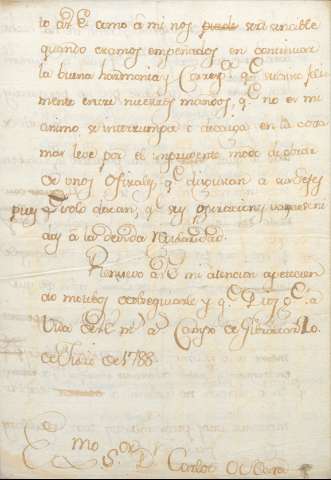 to á V.E. como á mi nos puede ser sensible
quando eramos empeñados en continuar
la buena harmonia y Corresp.ª q.e subsiste feliz
mente entre nuestros mandos, q.e no es mi
animo se interrumpa o decaiga en la cosa
mas leve por el imprudente modo de obrar
de unos Ofiziales, q.e disgustan a sus Gefes
pues solo dexan, q.e sus operaciones vayan
á la devida
Renuevo á V.E. mi atencion apetecien
do motibos de obsequiarle y q.e Dios g.e á
Vida de V.E. m.s a.s Campo de Gibraltar 10.
de Julio de 1788.
Ex
mo
S.or D.n Carlos O Hara